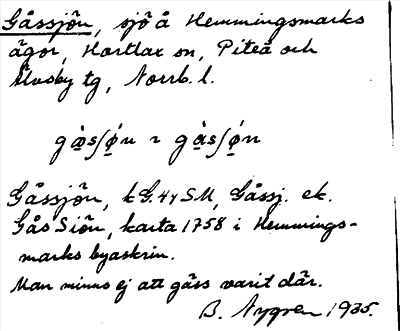 Gåssjön, sjö å Hemmingsmarks
ägor, Hortlax sn, Piteå och
Älvsby tg, Norrb. l.
gɑ̀sʃǿn ~ gàsʃǿn
Gåssjön, kG. 4v SM, Gåssj. ek.
Gås Siön, karta 1758 i Hemmings-
marks byaskrin.
Man minns ej att gäss varit där.
B. Nygren 1935.